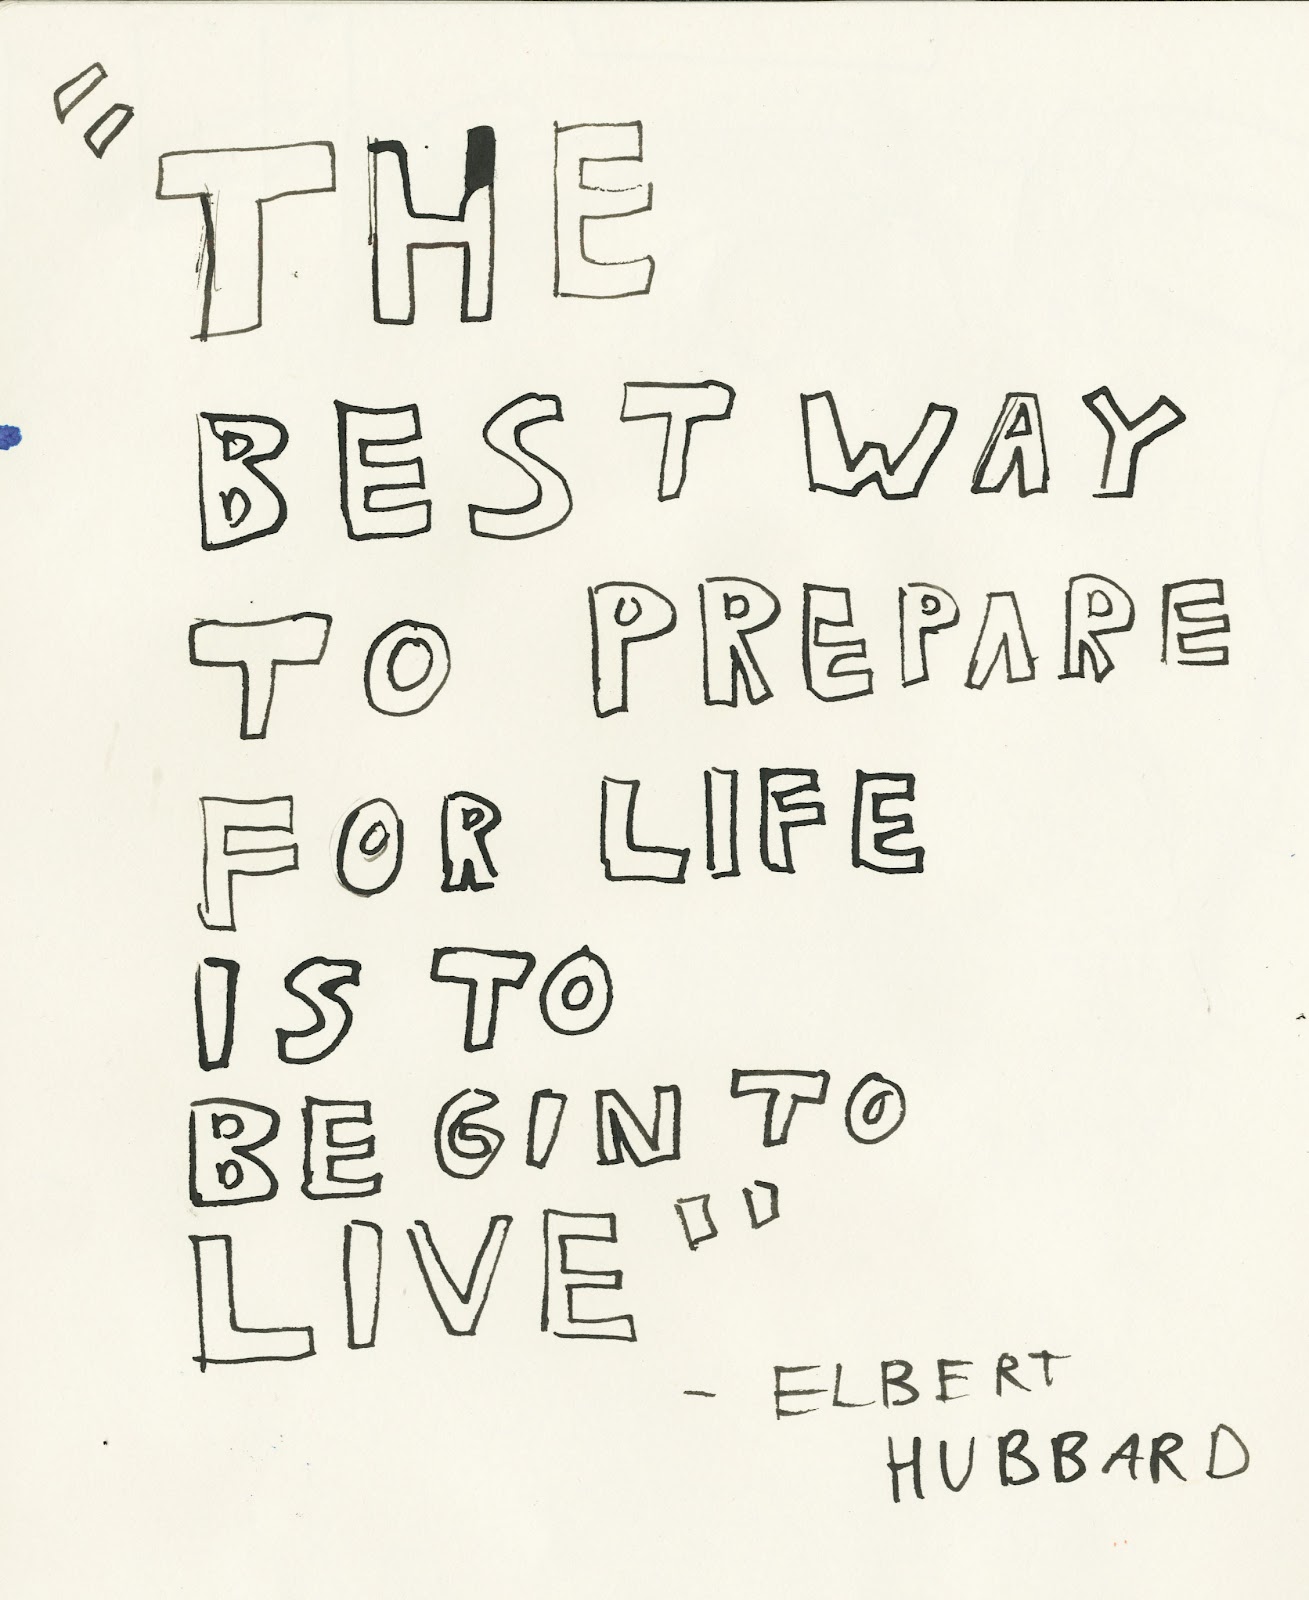 "THE
BEST WAY
TO PREPARE
FOR LIFE
IS TO
BEGIN TO
LIVE"
- ELBERT
HUBBARD